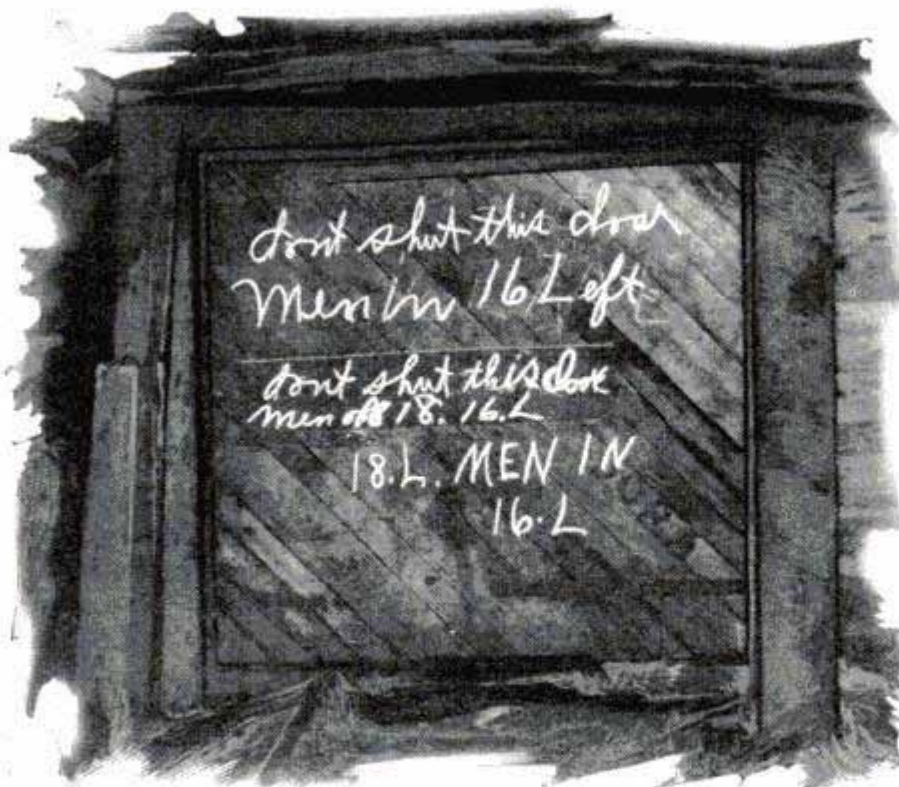 dont shut this door
Men in 16 Left
dont shut this door
men 18. 16.L
18.L. MEN IN
16.L